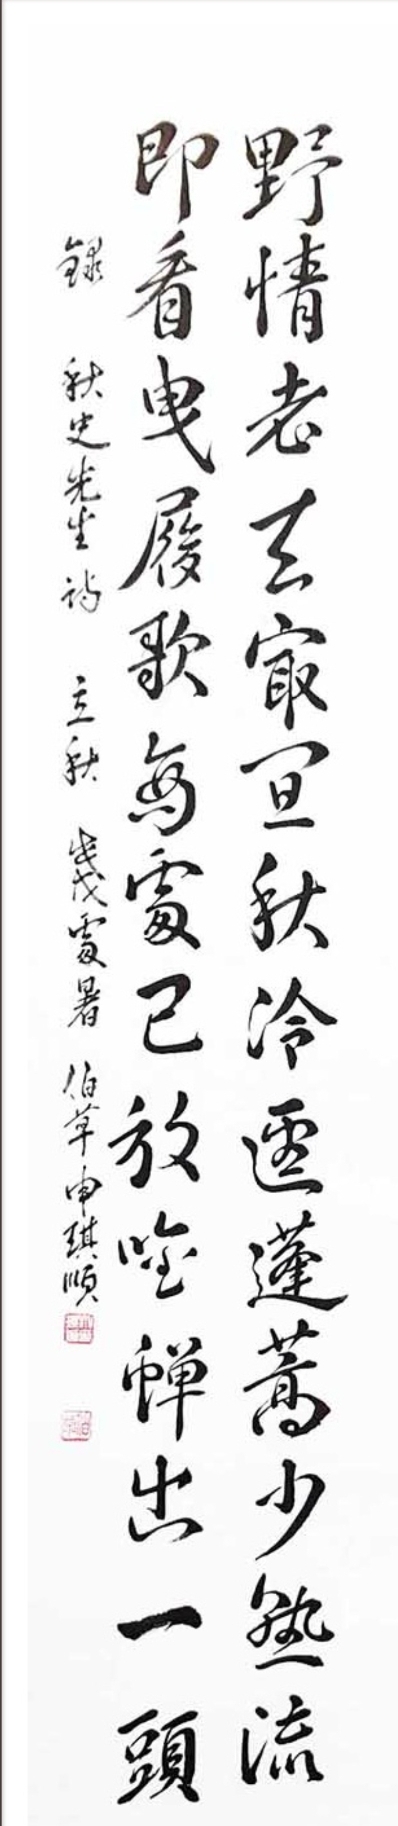 野情老去㝡宜秋冷逕蓬蒿少熱流
即看曳履歌商處已放唫蟬出一頭
錄 秋史先生詩 立秋 戊戌處暑 伯草申琪順